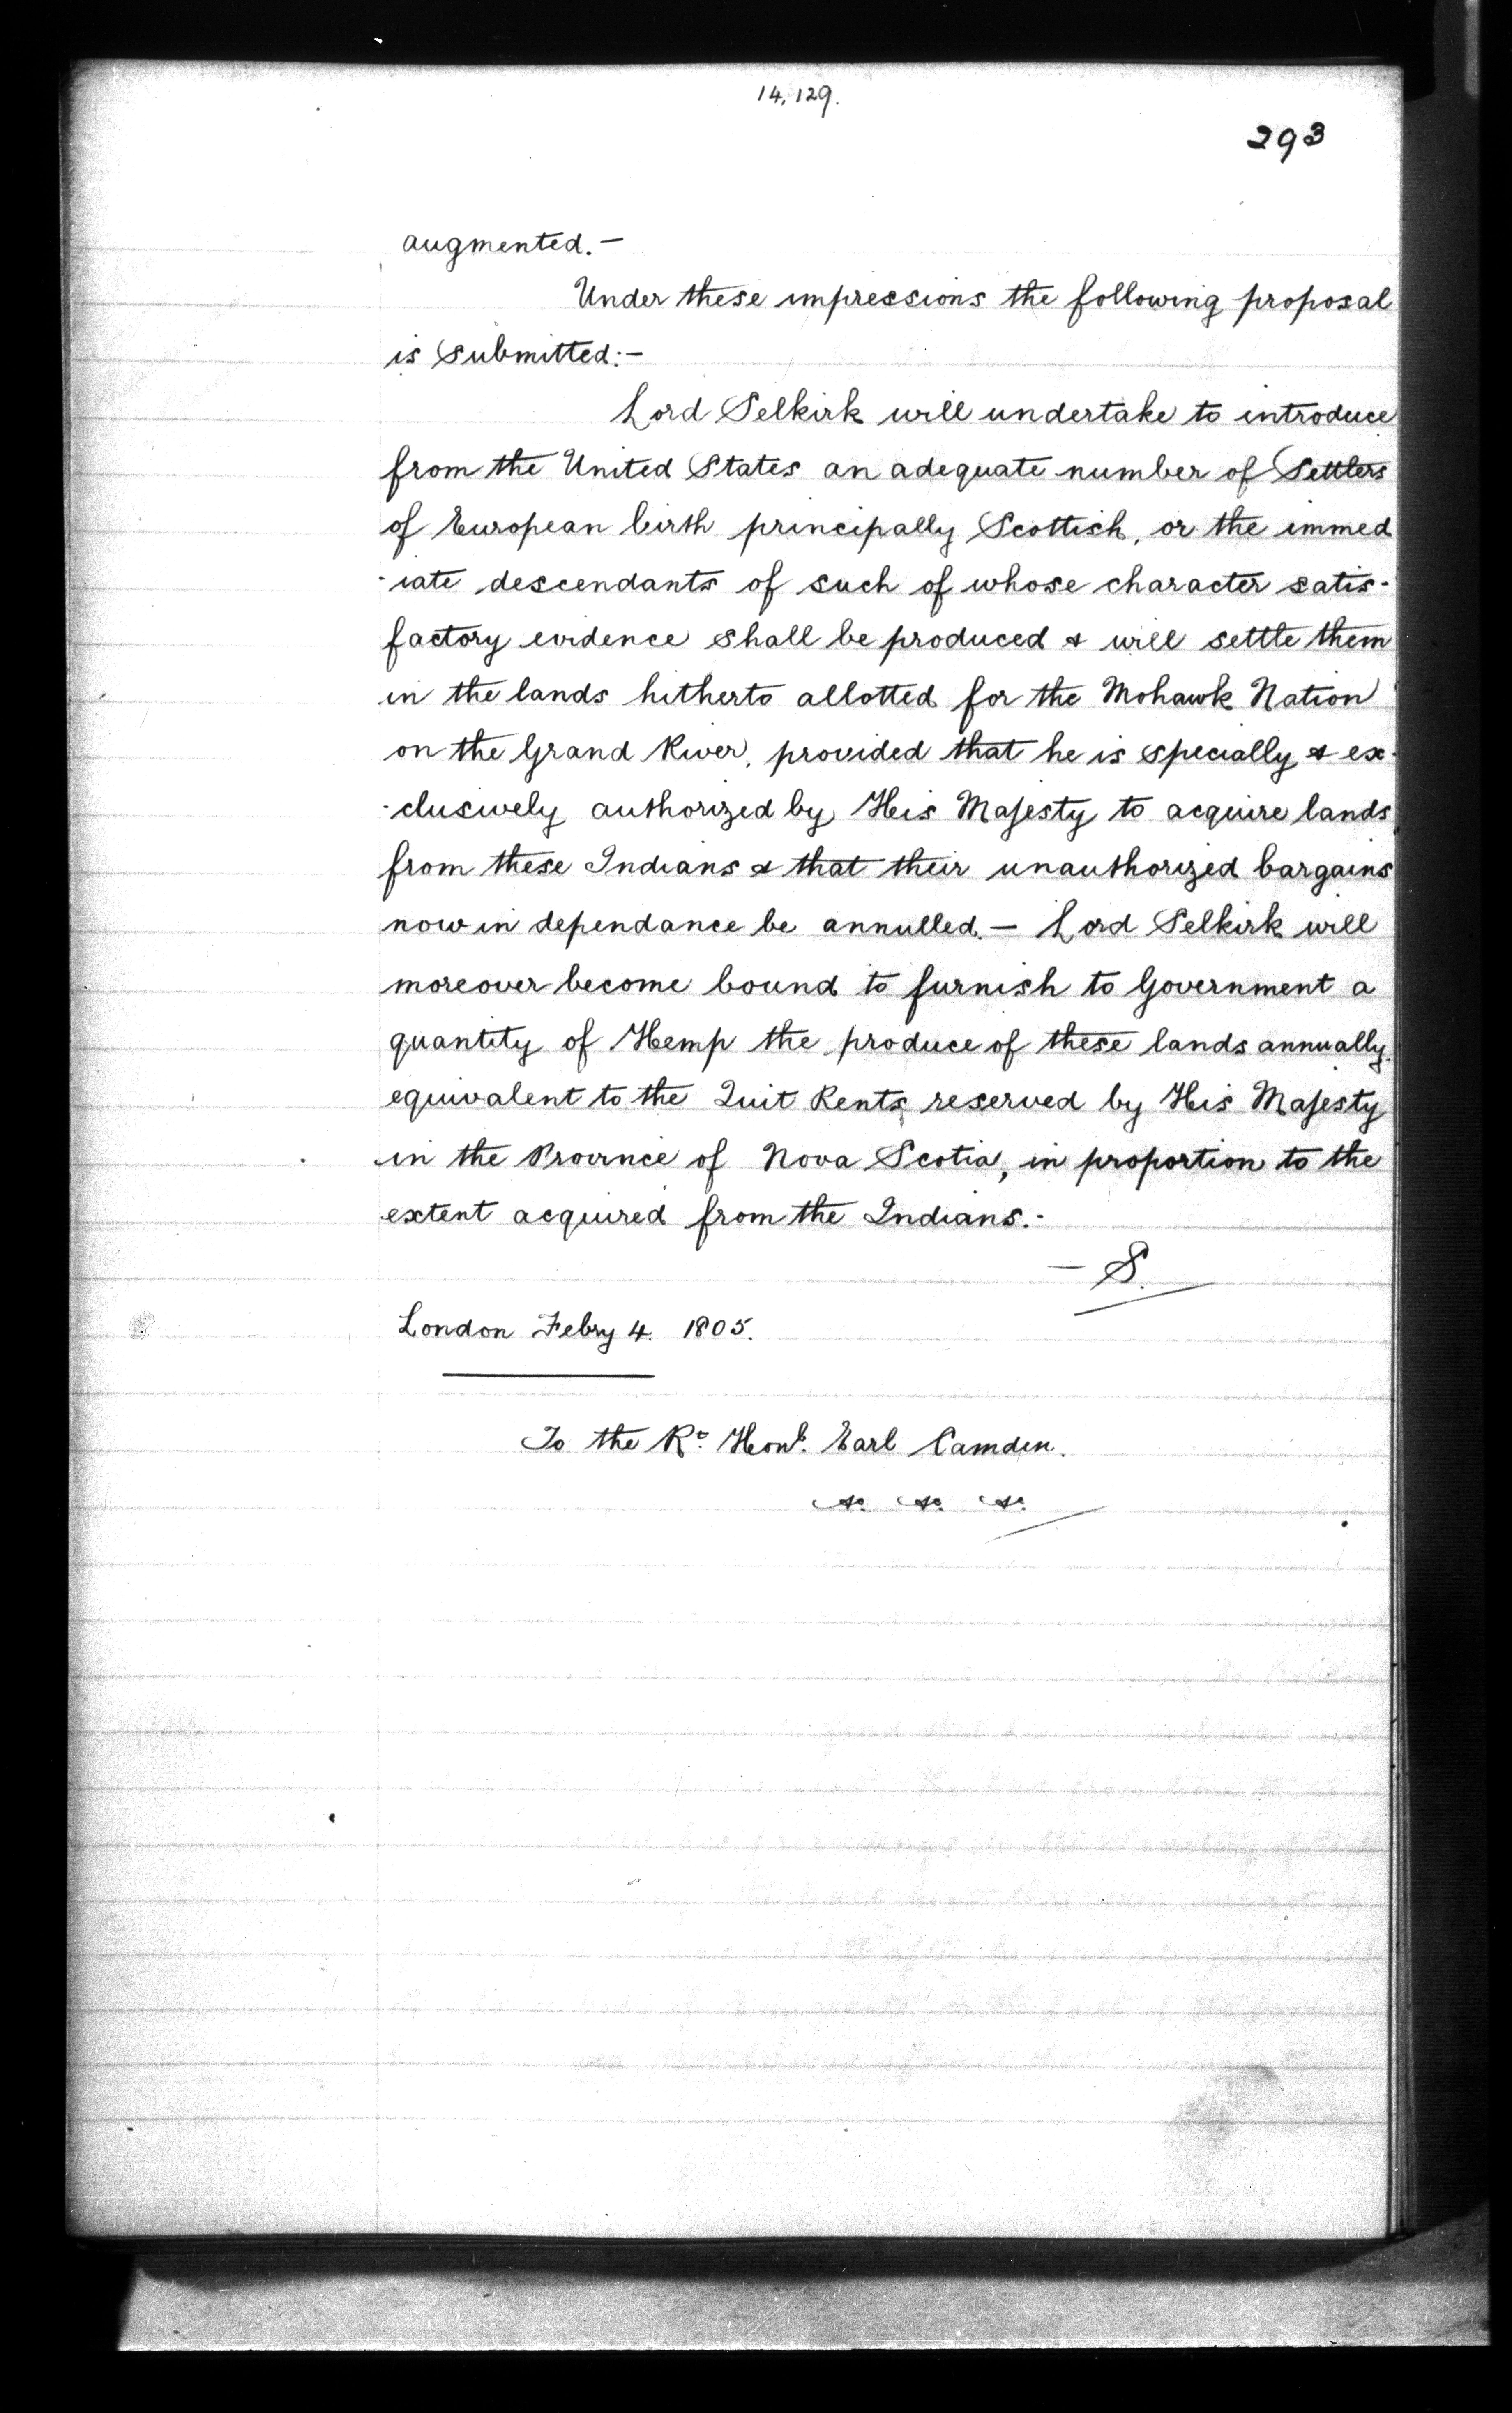 14,129.
293
augmented.—
Under these impressions the following proposal
is submitted:—
Lord Selkirk will undertake to introduce
from the United States an adequate number of Settlers
of European birth principally Scottish, or the immed
-iate descendants of such of whose character satis-
factory evidence shall be produced & will settle them
in the lands hitherto allotted for the Mohawk Nation
on the Grand River, provided that he is specially & ex-
-clusively authorized by His Majesty to acquire lands
from these Indians & that their unauthorized bargains
now in dependance be annulled.— Lord Selkirk will
moreover become bound to furnish to Government a
quantity of Hemp the produce of these lands annually.
equivalent to the Quit Rents reserved by His Majesty
in the Province of Nova Scotia, in proportion to the
extent acquired from the Indians.-
— S.
London Febry 4. 1805.
To the Rt. Honl. Earl Camden.
&c. &c. &c.